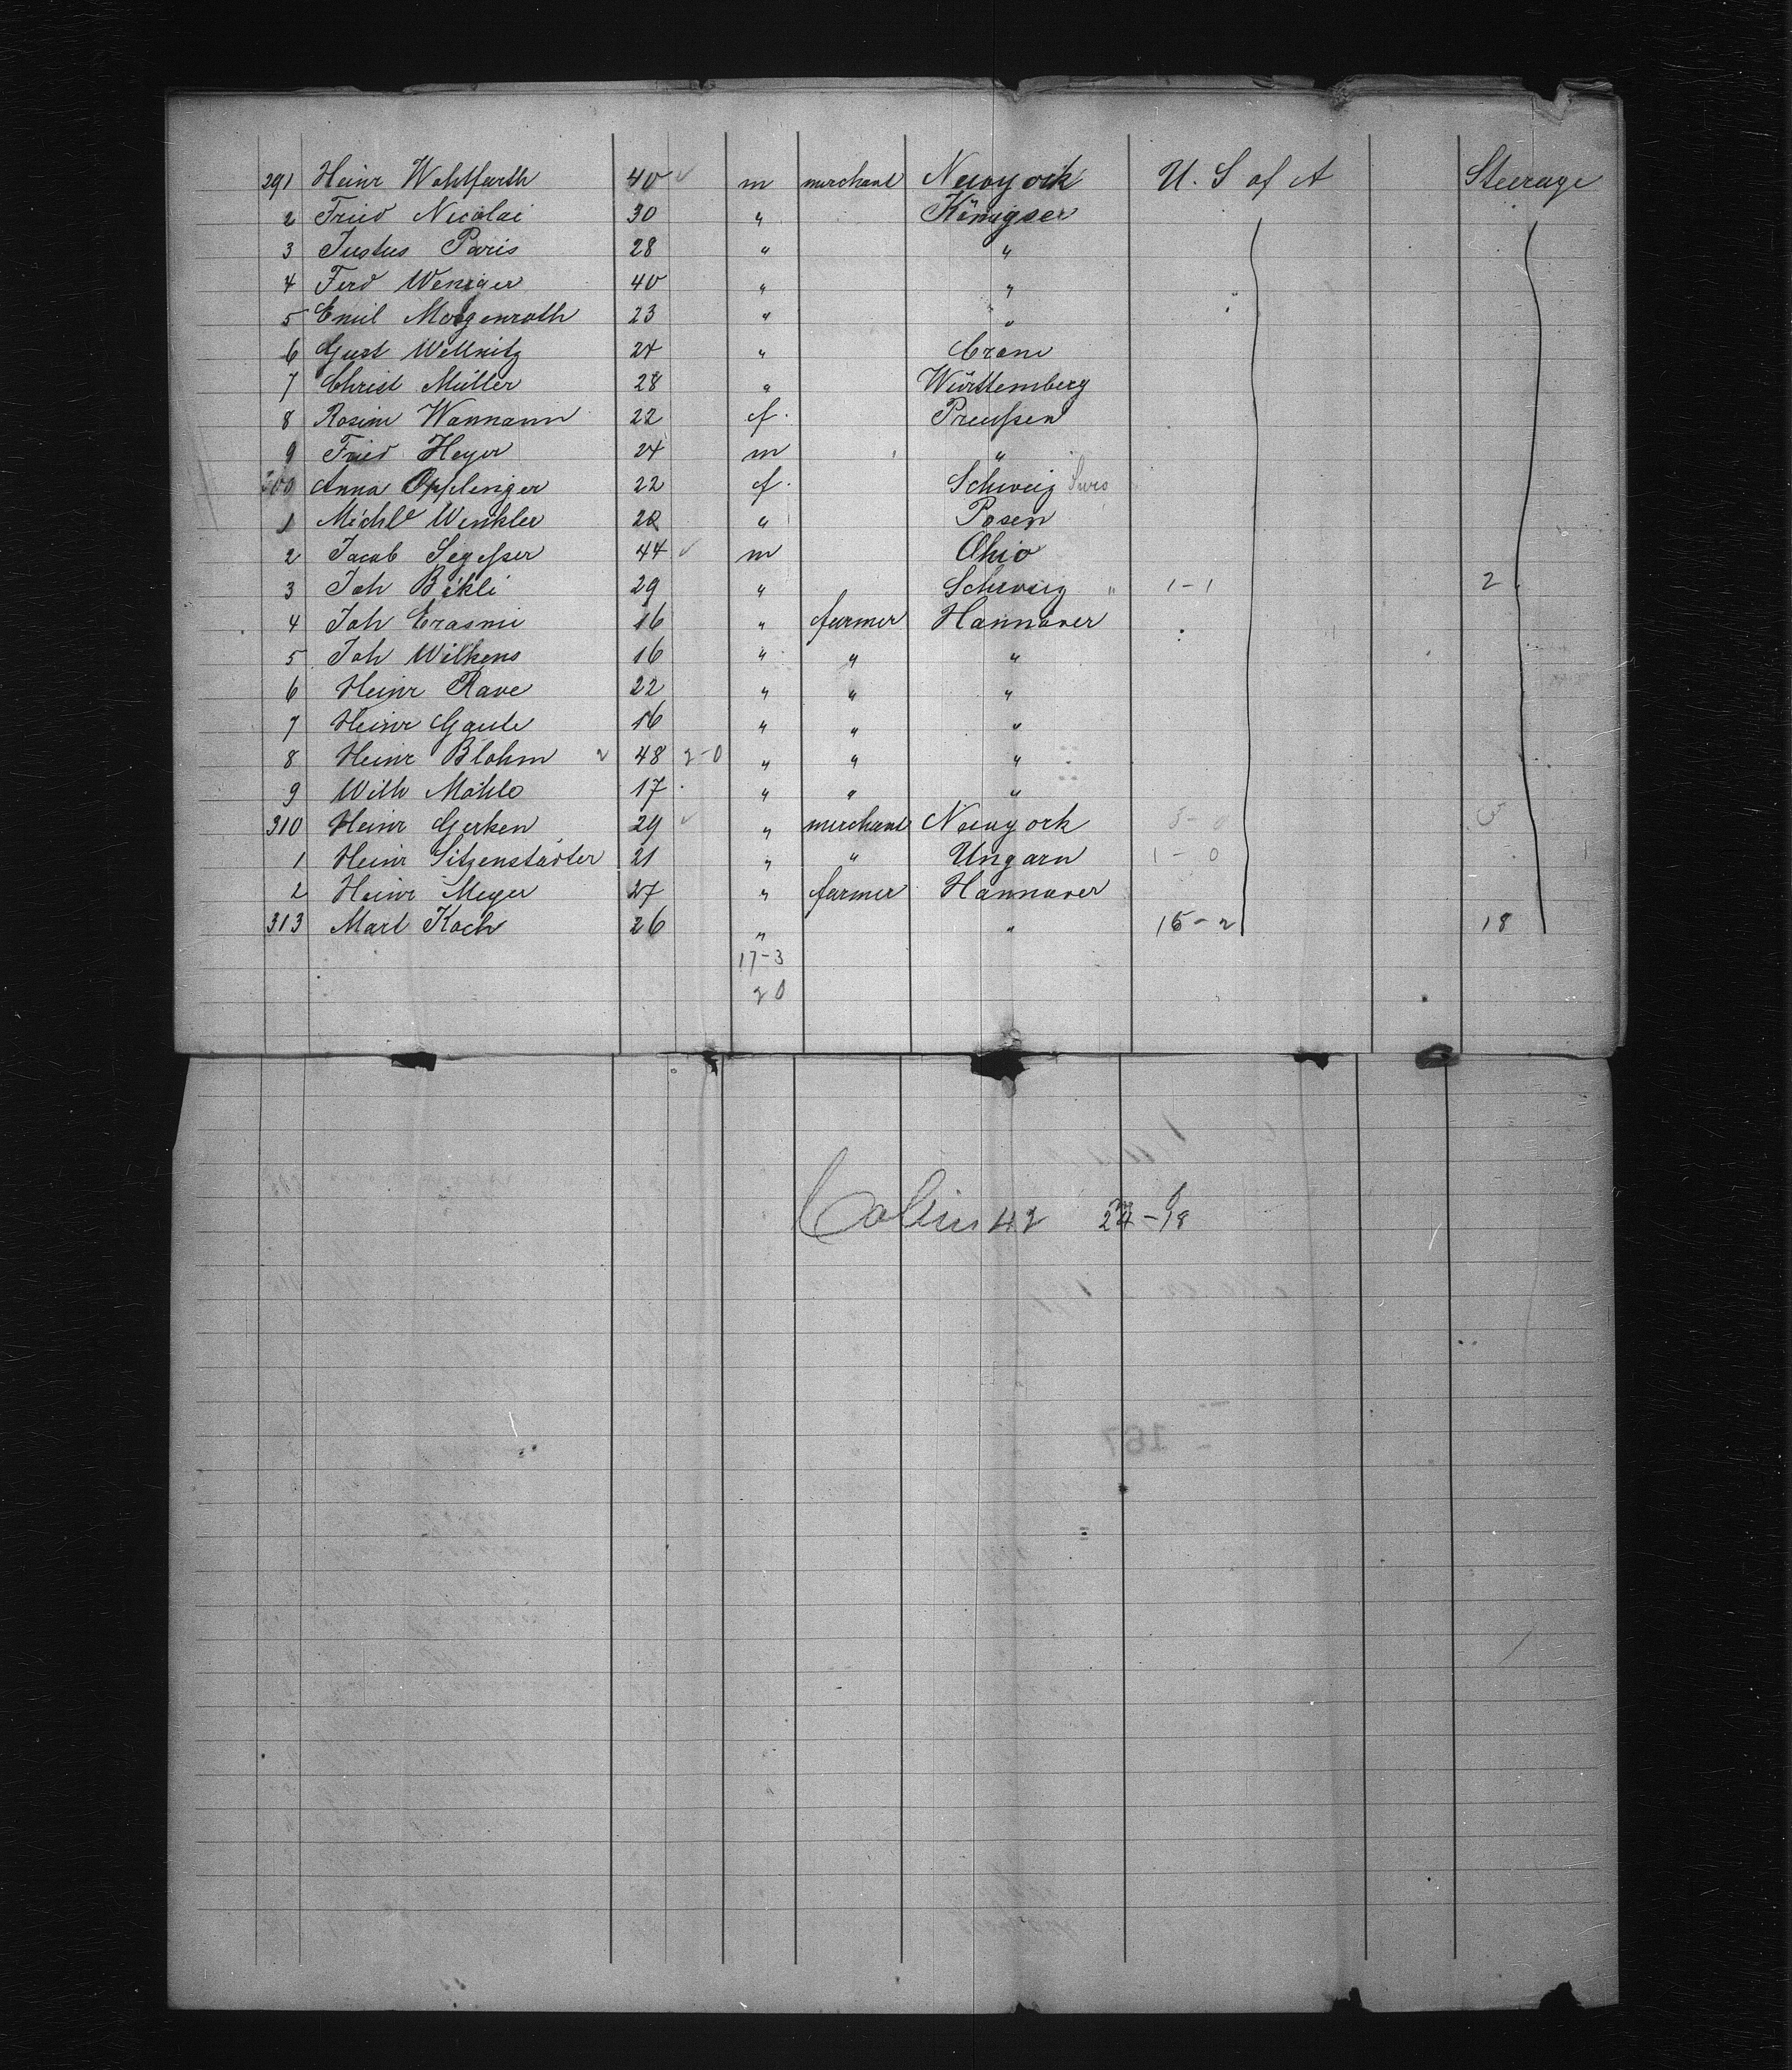 291 Heinr Wohlfarth 40 ✓ m merchant Newyork U. S of A Steerage
2 Fried Nicolai 30 " Königsee
3 Justus Paris 28 " "
4 Ferd Weniger 40 " "
5 Emil Morgenroth 23 " "
6 Gust Wellnitz 24 "
7 Christ Müller 28 " Württemberg
8 Rosine Wannann 22 f. Preußen
9 Fried Heyer 24 m "
300 Anna Opplinger 22 f. Schweiz Swis
1 Michle Winkler 22 " Posen
2 Jacob Segesser 44 ✓ m Ohio
3 Joh Bökli 29 " Schweiz " 1-1 2
4 Joh Erasmi 16 " farmer Hannover
5 Joh Wilkens 16 " " "
6 Heinr Rave 22 " " "
7 Heinr Gaule 16 " " "
8 Heinr Blohm 2 48 2-0 " " "
9 Wilh Möhle 17 " " "
310 Heinr Gerken 29 ✓ " merchant Newyork 3-0 3
1 Heinr Sitzenstädter 21 " " Ungarn 1-0
2 Heinr Meyer 27 " farmer Hannover
313 Mart Koch 26 " " 16-2 18
17-3
20
Cabin 42 24-18